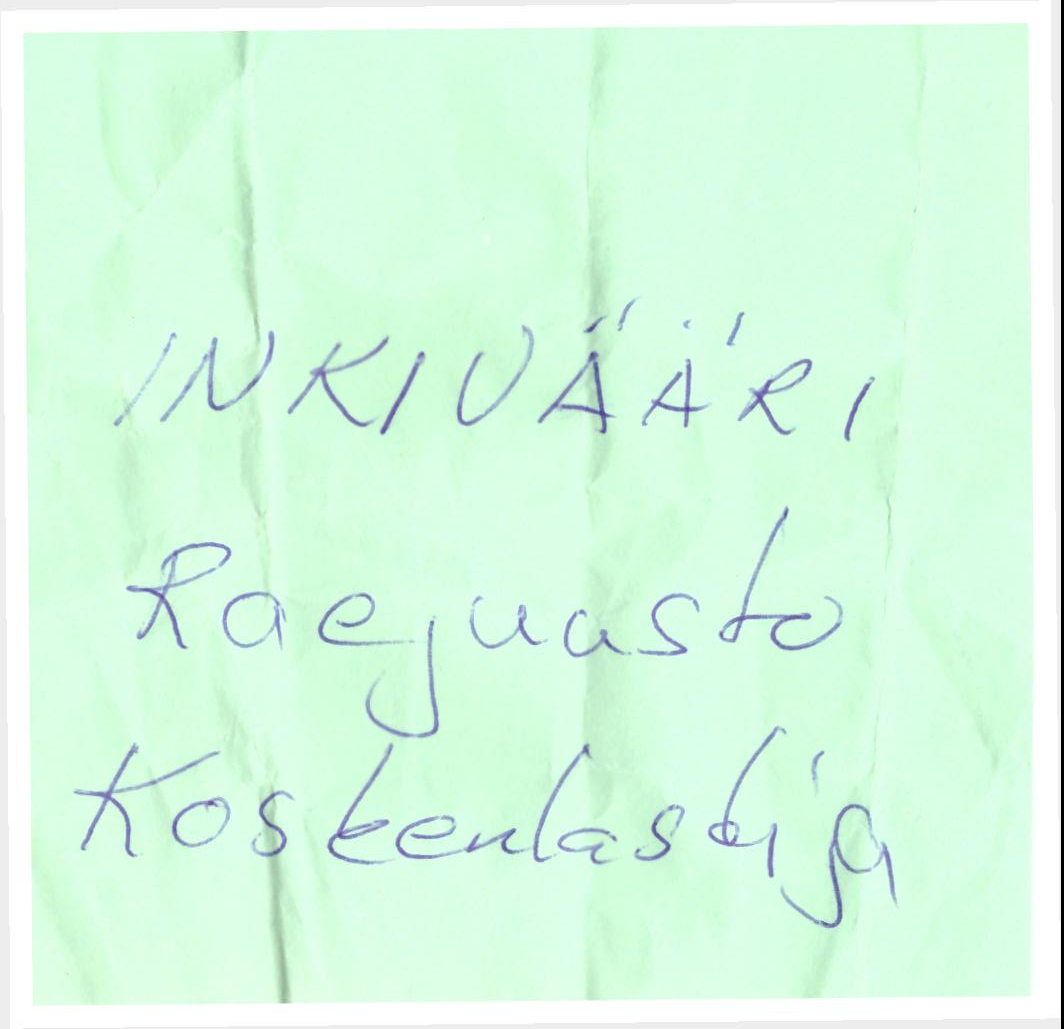 INKIVÄÄRI
Raejuusto
Koskenlaskija